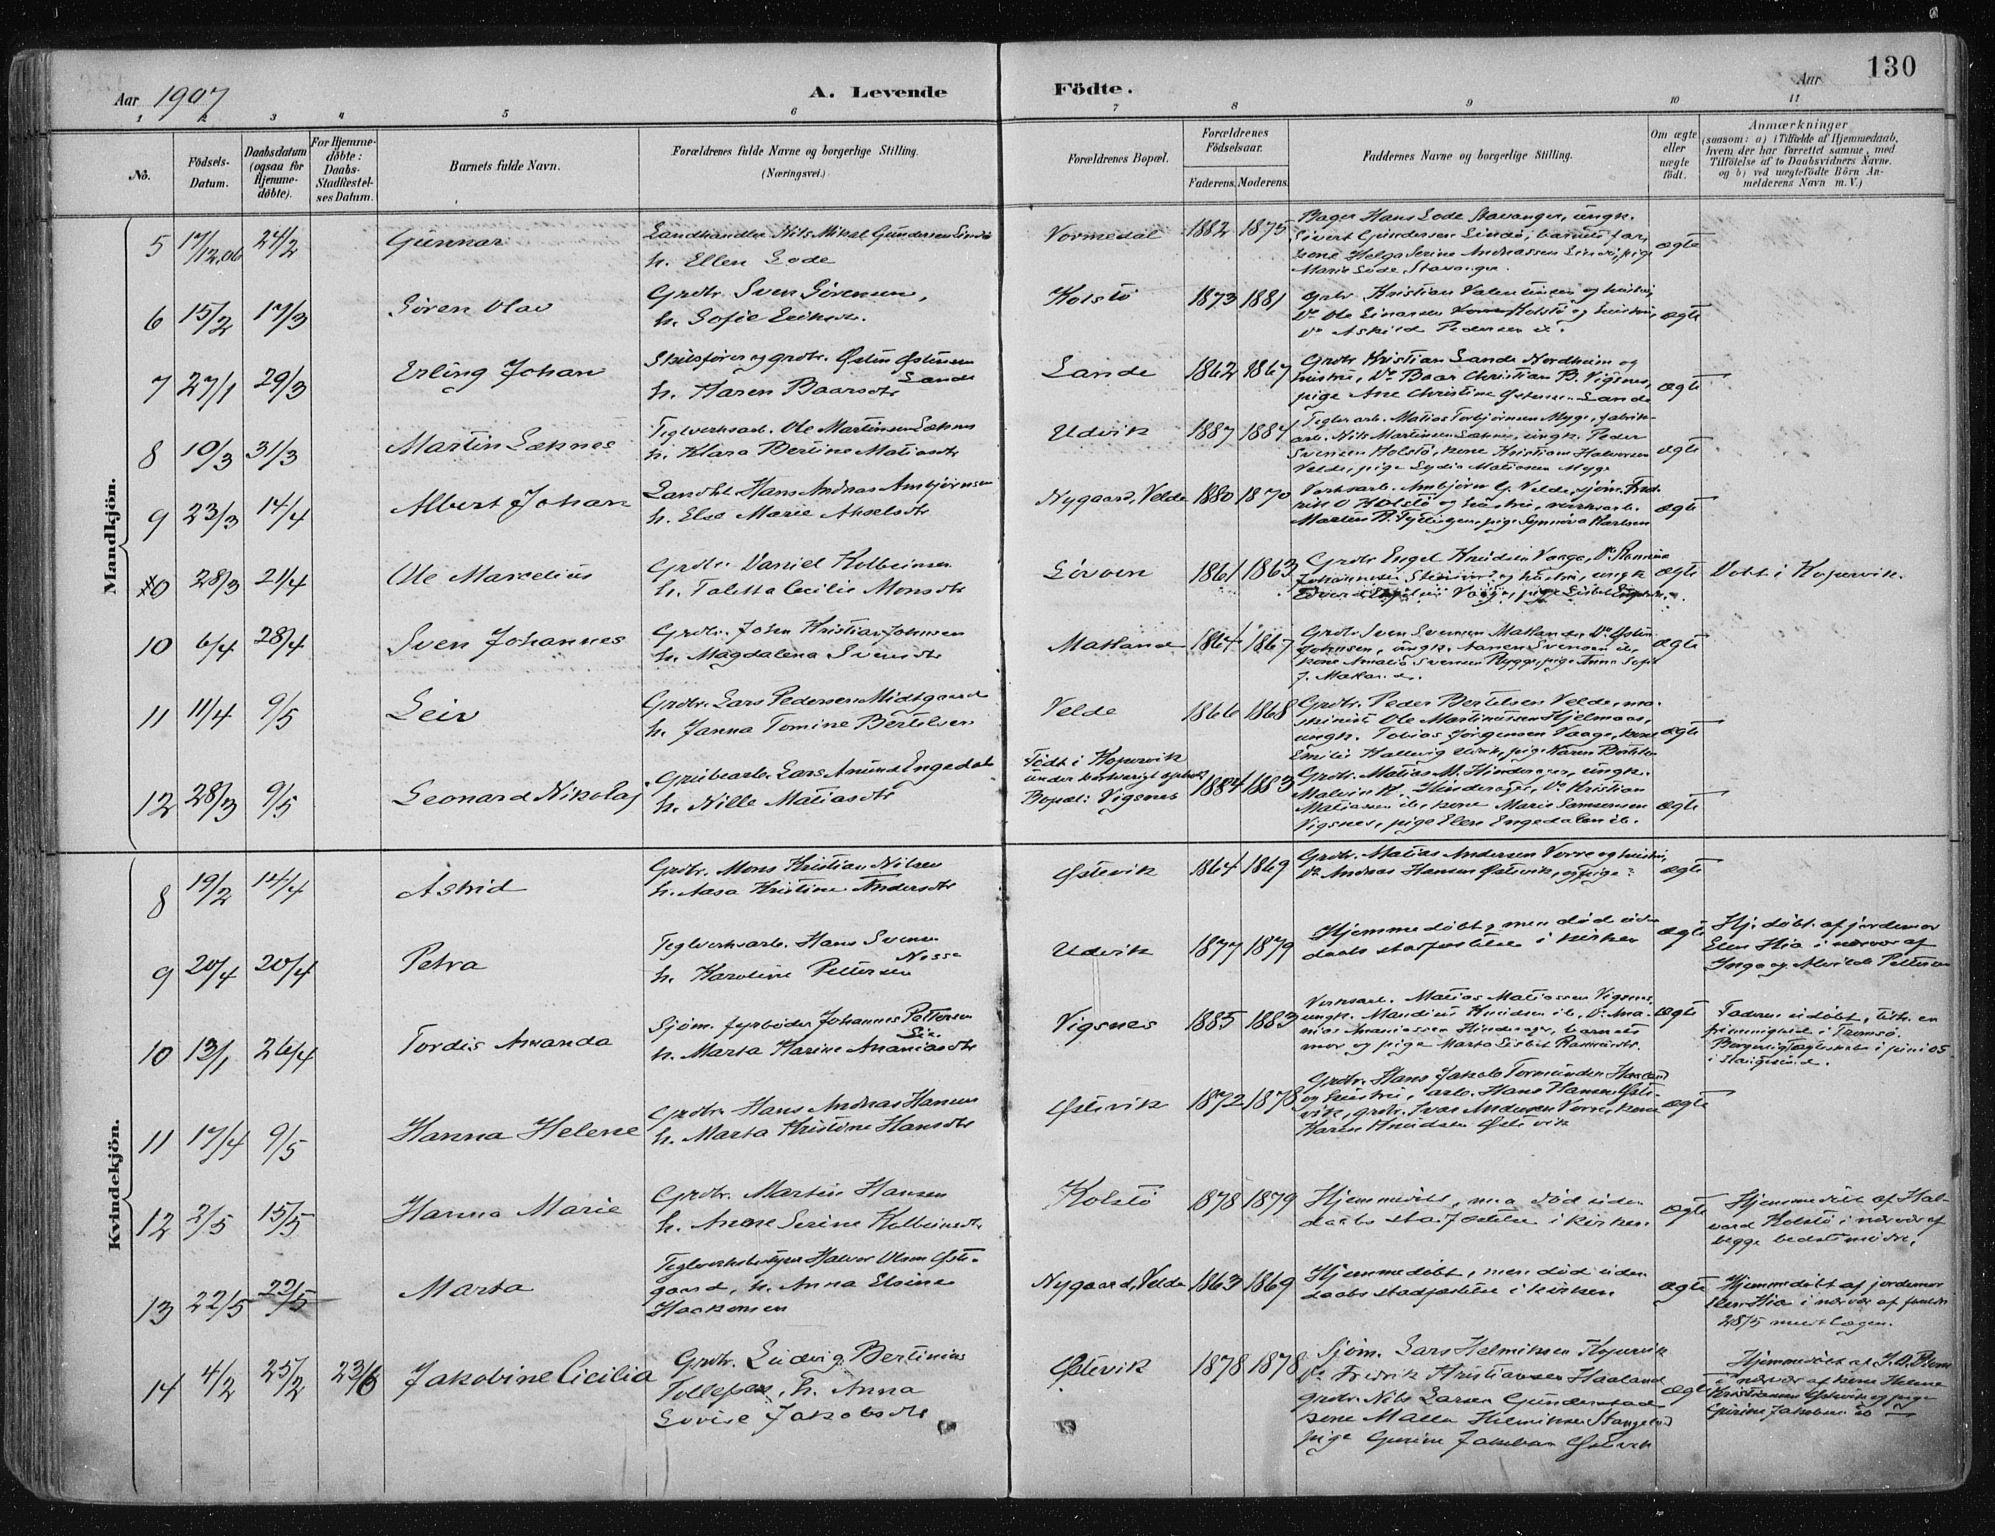 130
Aar 1907
A. Levende
Födte.
Aar
1 2 3 4 5 6 7 8 9 10 11
No.
Födsels-
Datum.
Daabsdatum
(ogsaa for
Hjemme-
döbte).
For Hjemme-
döbte:
Daabs-
Stadfæstel-
ses Datum.
Barnets fulde Navn.
Forældrenes fulde Navne og borgerlige Stilling.
(Næringsvei.)
Forældrenes Bopæl.
Forældrenes
Födselsaar.
Faderens. Moderens.
Faddernes Navne og borgerlige Stilling.
Om ægte
eller
uægte
födt.
Anmærkninger
(saasom: a) i Tilfælde af Hjemmedaab,
hvem der har forrettet samme, med
Tilföielse af to Daabsvidners Navne.
og b) ved uegtefödte Börn An-
melderens Navn m. V.)
Mandkjön.
5 17/12.06 24/2 Gunnar
Landhandler Nils Mikal Gundersen
h. Ellen Lode
Vormedal 1882 1875
Bager Hans Lode Stavanger, ungk.
Sivert Gundersen Lindö, barnets far,
kone Helga Serine Andreassen Lindö, pige
Marie Lode, Stavanger.
ægte
6 15/2 17/3 Sören Olav
Grdbr. Sven Sörensen,
h. Sofie Eriksdtr.
Kolstö 1873 1881
Grbr. Kristian Valentinsen og hustru,
Do Ole Einarsen Kolstö og hustru,
Do Askild Pedersen ib.
ægte
7 27/1 29/3 Erling Johan
Skibsförer og grdbr. Østen Østensen
Lande
h. Karen Baarsdtr
Lande 1862 1867
Grdbr Kristian Lande Nordheim og
hustru, Do Baar Christian B. Vigsnes,
pige Ane Christine Østensen Lande
ægte
8 10/3 31/3 Martin Læknes
Teglverksarb. Ole Martinsen Læknes
h. Klara Bertine Matiasdtr
Udvik 1887 1884
Teglverksarb. Matias Torbjörnsen Myge, fabrik-
arb. Nils Martinsen Læknes, ungk. Peder
Svensen Kolstö, kone Kristiane Halvorsen
Velde, pige Lydia Matiasen Myge
ægte
9 23/3 14/4 Albert Johan
Hans Andreas Ambjörnsen
h. Else Marie Akselsdtr
Nygaard, Velde 1880 1870
Verksarb. Ambjörn G. Velde, sjöm.
O Kolstö og hustru, verksarb.
Martin B. pige Synnöve Karlsen
ægte
10 28/3 21/4 Ole Marcelius
Grdbr. Daniel Kolbeinsen
h. Taletta Cecilie Monsdtr
Sörvoen 1861 1863
Grdbr Engel Knudsen Vaage,
Johannesen og hustru, ungk
Vaage, pige
ægte
Döbt i Kopervik.
10 6/4 28/4 Sven Johannes
Grdbr. John Kristian Johnsen
h. Magdalena Svensdtr
Matland 1864 1867
Grdbr. Sven Svensen Matland, Do Østen
Johnsen, ungk. Svensen ib,
kone Amalia Svensen Rygge, pige Anna Sofie
J. Matland.
ægte
11 11/4 9/5 Leiv
Grdbr. Lars Pedersen Midtgaard
h. Janna Tomine Bertelsen
Velde 1866 1868
Grdbr. Peder Bertelsen Velde, ma-
skinist Ole Martinussen Hjelmaas,
ungk. Tobias Jörgensen Vaage, kone
Emilie Hallevig Udvik, pige Karen
ægte
12 28/3 9/5 Leonard Nikolaj
Grubearb. Lars Amund Engedal
h. Nille Matiasdtr
Födt i Kopervik
under ophold
Bopæl: Vigsnes
1884 1883
Grdbr. Matias M. Hinderager, ungk.
Malvin K. Hinderager, Do Kristian
Matiassen ib, kone Marie Samsonsen
Vigsnes, pige Elen Engedalen ib.
ægte
Kvindekjön.
8 19/2 14/4 Astrid
Grdbr. Mons Kristian Nilsen
h. Aasa Kristine Andersdtr
Østevik 1864 1869
Grdbr. Matias Andersen Vorre og hustru,
Do Andreas Hansen Østevik, og pige
ægte
9 20/4 20/4 Petra
Teglverksarb. Hans Svensen
Nesse
h. Karoline Pettersen
Udvik 1877 1879
Hjemmedöbt, men död uden
daabs stadfæstelse i kirken
ægte
Hj. döbt af jordemor
Elen Hia i nærvær af
Inga og Alvilde Pettersen
10 13/1 26/4 Tordis Amanda
Sjöm. fyrböder Johannes Pettersen
Lie
h. Marta Karine Ananiasdtr
Vigsnes 1885 1883
Verksarb. Matias Matiassen Vigsnes,
ungk. Mandius Knudsen ib, Do Ana-
nias Ananiassen Hinderager, barnets
mor og pige Marta Lisbet Rasmusdtr.
ægte
Faderen ei döbt, tilh. en
frimenighed i Tromsö.
Borgerlig ægteskab i juni 05
i Haugesund.
11 17/4 9/5 Hanna Helene
Grdbr. Hans Andreas Hansen
h. Marta Kristine Hansdtr
Østevik 1872 1878
Grdbr. Hans Jakob Tormundsen Haaland
og hustru, arb. Hans Hansen Øste-
vik, grdbr. Ivar Andersen Vorre, kone
Karen Knudsen Østevik
ægte
12 2/5 15/5 Hanna Marie
Grdbr. Martin Hansen
h. Anne Serine Kolbeinsdtr
Kolstö 1878 1879
Hjemmedöbt, men död uden
daabs stadfæstelse i kirken.
ægte
Hjemmedöbt af Hal-
vard Kolstö i nærvær af
begge bedstemödre.
13 22/5 22/5 Marta
Halvor Olsen Øste-
gaard, h. Anna Elsine
Haakonsen
Nygaard, Velde 1863 1869
Hjemmedöbt, men död uden
daabs stadfæstelse i kirken.
ægte
Hjemmedöbt af jordemor
Elen Hia i nærvær af
28/5
14 4/2 25/2 23/6 Jakobine Cicilia
Grdbr. Ludvig Bertinius
Tollefsen, h. Anna
Lovise Jakobsdtr
Østevik 1878 1878
Sjöm. Lars Helmiksen Kopervik
Do Fredrik Kristiansen Haaland
grdbr. Nils Larsen Gunderstad
kone Malla Helmiksen Stangeland
pige Gurine Jakobsen Østevik
ægte
Hjemmedöbt af
i nærvær af kone Helene
Kristiansen Østevik og pige
Gurine Jakobsen